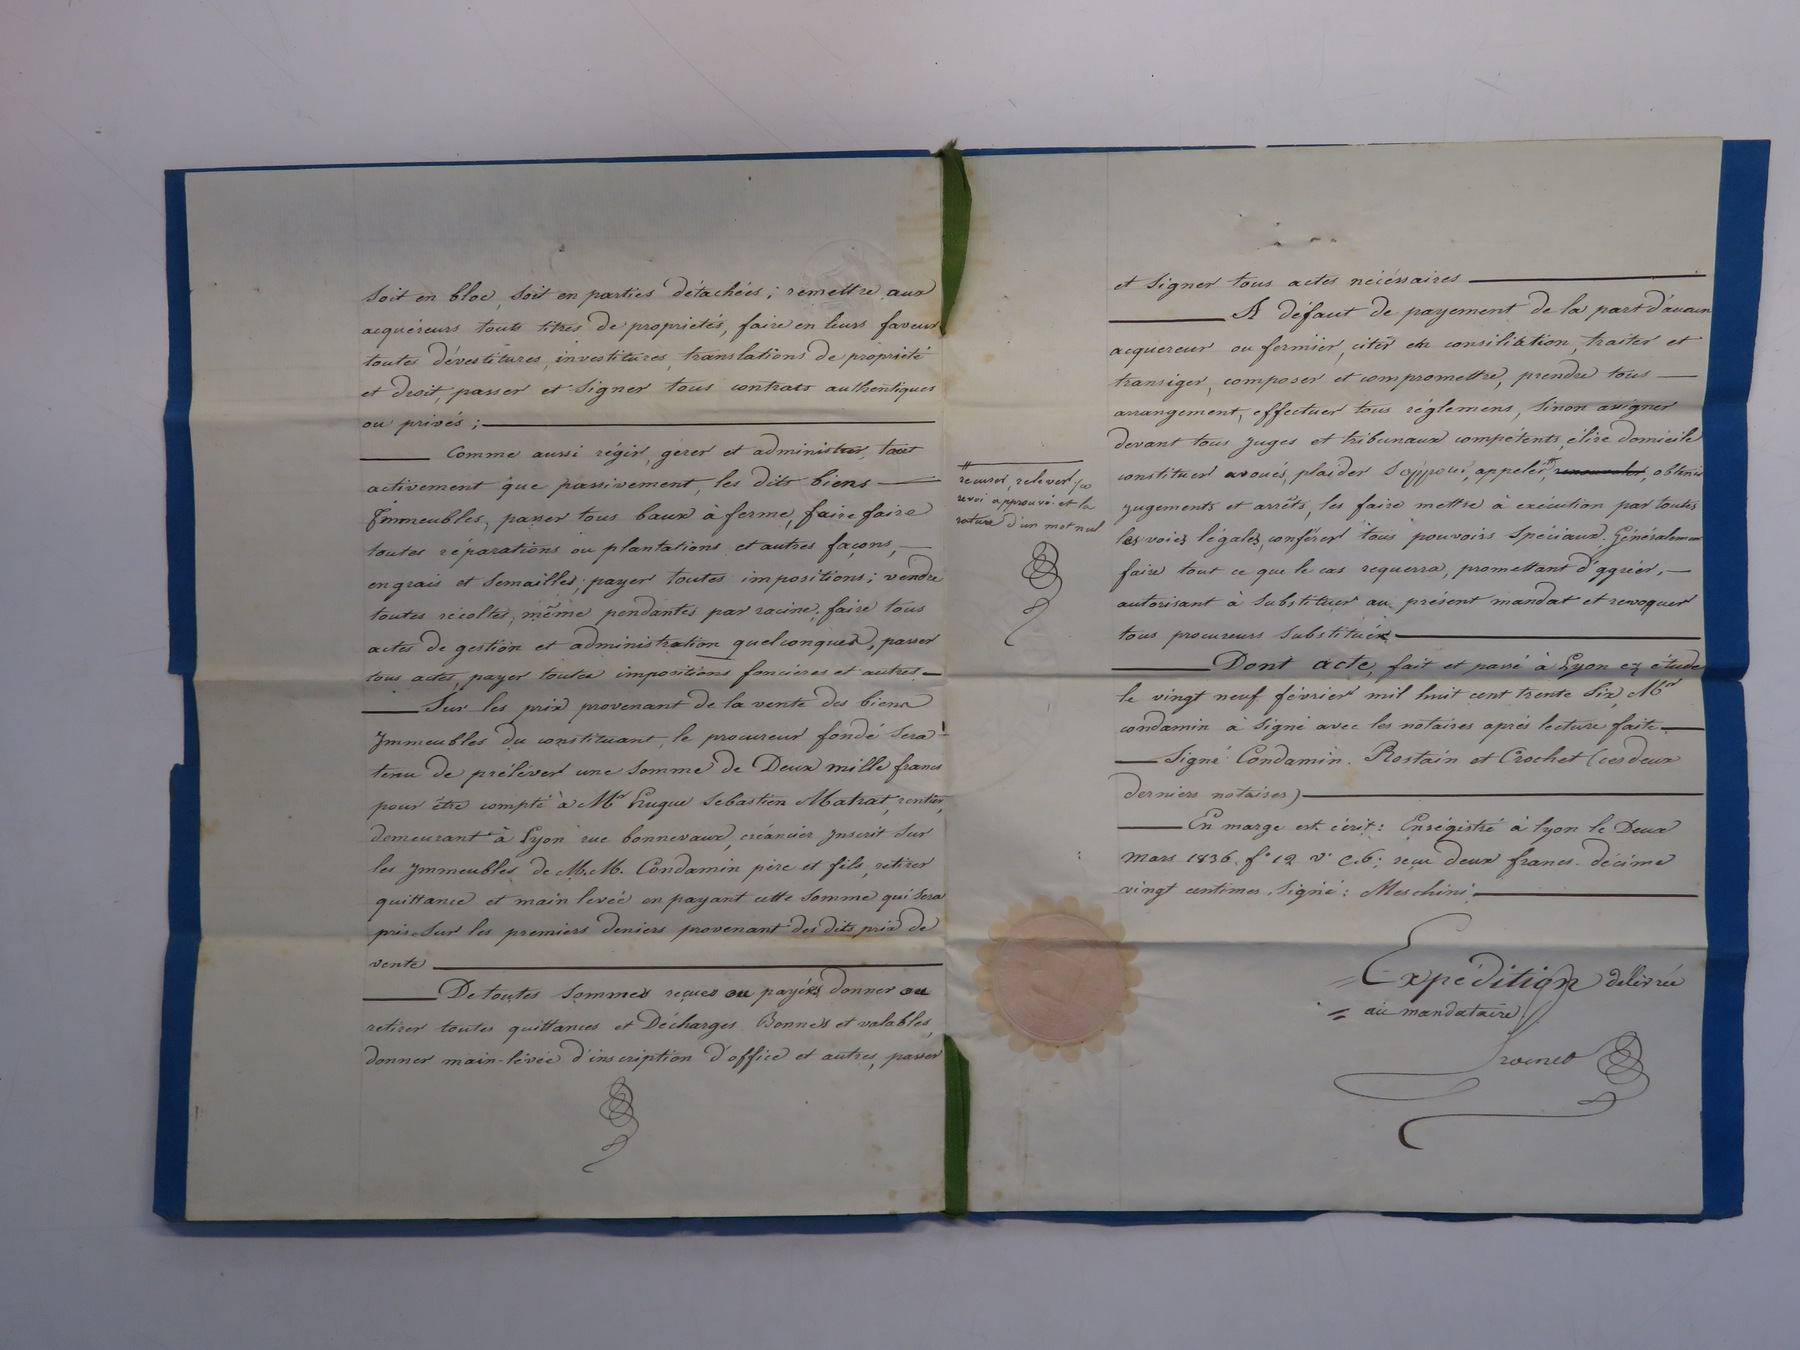 soit en bloc, soit en parties détachées; remettre aux
acquéreurs touts titres de propriétés, faire en leurs faveur
toutes dévestitures, investitures, translations de propriété
et droit, passer et signer tous contrats authentiques
ou privés;
Comme aussi régir, gérer et administrer, tant
activement que passivement, les dits biens
Immeubles, passer tous baux à ferme, faire faire
toutes réparations ou plantations et autres façons,
engrais et semailles; payer toutes impositions; vendre
toutes récoltes, même pendantes par racine; faire tous
actes de gestion et administration quelconques, passer
tous actes, payer toutes impositions foncières et autres
Sur les prix provenant de la vente des biens
Immeubles du constituant, le procureur fondé sera
tenu de préléver une somme de Deux mille francs
pour être compté à Mr Hugue Sebastien Matrat, rentier,
demeurant à Lyon rue bonnevaux, créancier Inscrit sur
les Immeubles de M.M. Condamin père et fils, retirer
quittance et main levée en payant cette somme qui sera
prise sur les premiers deniers provenant des dits prix de
vente
De toutes sommes reçues ou payées donner ou
retirer toutes quittances et Décharges Bonnes et valables,
donner main-levée d'inscription d'office et autres, passer
et signer tous actes nécéssaires
A défaut de payement de la part d'aucun
acquereur ou fermier, citer en consiliation, traiter et
transiger, composer et compromettre, prendre tous
arrangement, effectuer tous réglemens, sinon assigner
devant tous Juges et tribunaux compétents, élire domicile
constituer avoués, plaider s'opposer, appeler, obtenir
# recuser, relever
revoi approuvé et la
rature d'un mot nul
Jugements et arrêts, les faire mettre à exécution par toutes
les voies légales, conférer tous pouvoirs spéciaux. Généralement
faire tout ce que le cas requerra, promettant d'agréer,
autorisant à substituer au présent mandat et revoquer
tous procureurs substitués
Dont acte, fait et passé à Lyon en étude
le vingt neuf février mil huit cent trente six, Mr
condamin à signé avec les notaires après lecture faite
Signé Condamin. Rostain et Crochet (ces deux
derniers notaires)
En marge est écrit: Enrégistré à lyon le Deux
mars 1836. f° 12 v° c.6; reçu deux francs. décime
vingt centimes. signé: Meschini.
Expédition délivrée
au mandataire